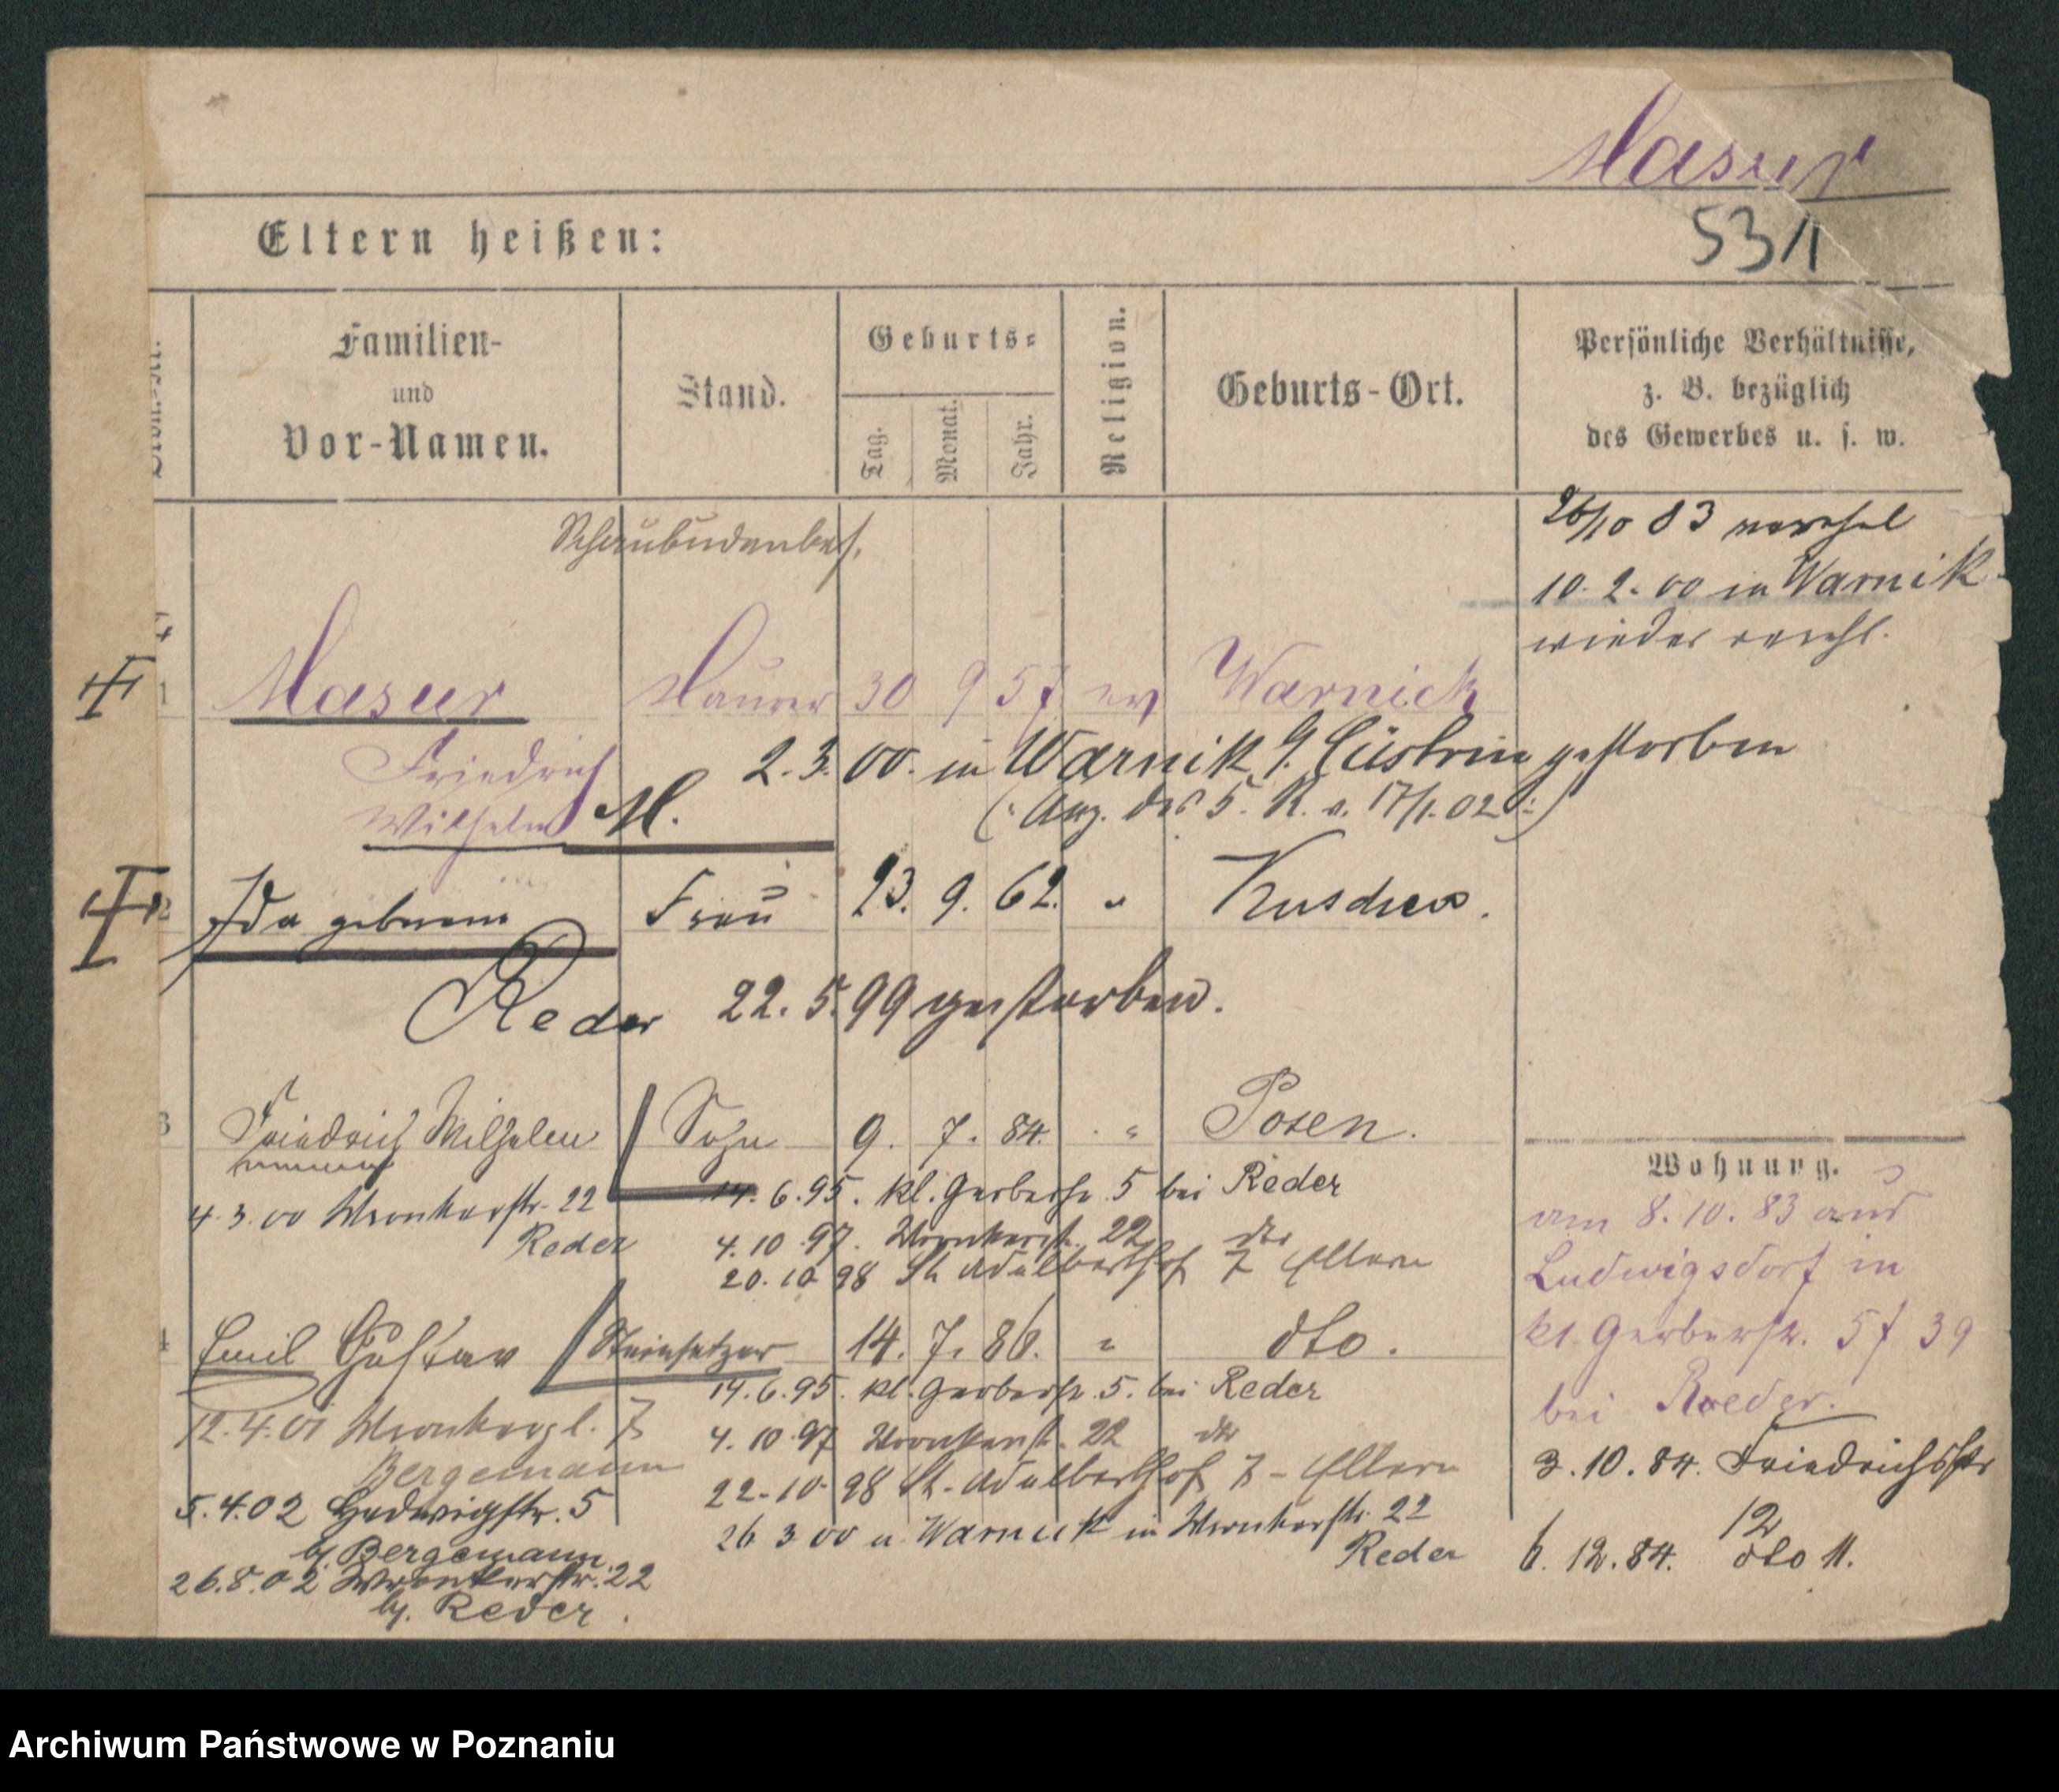 Masur
531
Eltern heißen:
Familien-
und
Vor-Namen.
Stand.
Geburts-
Tag.
Monat.
Jahr.
Religion.
Geburts-Ort.
Persönliche Verhältnisse,
z. B. bezüglich
des Gewerbes u. s. w.
Schaubudenbes.
26/10 83
10. 2. 00 in Warnik
wieder verehl.
1 Masur Maurer 30 9 57 ev Warnick
Friedrich
Wilhelm M.
2. 3. 00. in Warnik Cüstrin gestorben
(: Anz. des 5. R. v. 17/1. 02 :)
2 Ida geborene Frau 23. 9. 62. "
Reder 22. 5. 99 gestorben.
3 Friedrich Wilhelm Sohn 9. 7. 84. " Posen.
14. 6. 95. kl. Gerberstr. 5 bei Reder
4. 3. 00 Wronkerstr. 22
Reder
4. 10. 97. Wronkerstr. 22 dto
20. 10. 98 St. Adalberthof 7 Eltern
4 Emil Gustav Steinsetzer 14. 7. 86. " dto.
14. 6. 95. kl. Gerberstr. 5. bei Reder
12. 4. 01 Wronkerpl. 7
Bergemann
4. 10. 97 Wronkerstr. 22 dto
22. 10. 98 St. Adalberthof 7 - Eltern
5. 4. 02 Hedwigstr. 5
bj. Bergemann
26 3 00 v. Warnik in Wronkerstr. 22
Reder
26. 8. 02 Wronkerstr. 22
bj. Reder.
Wohnung.
am 8. 10. 83 aus
Ludwigsdorf in
kl. Gerberstr. 5 f 39
bei Roeder.
3. 10. 84. Friedrichsstr
12
6. 12. 84. dto 11.
Archiwum Państwowe w Poznaniu